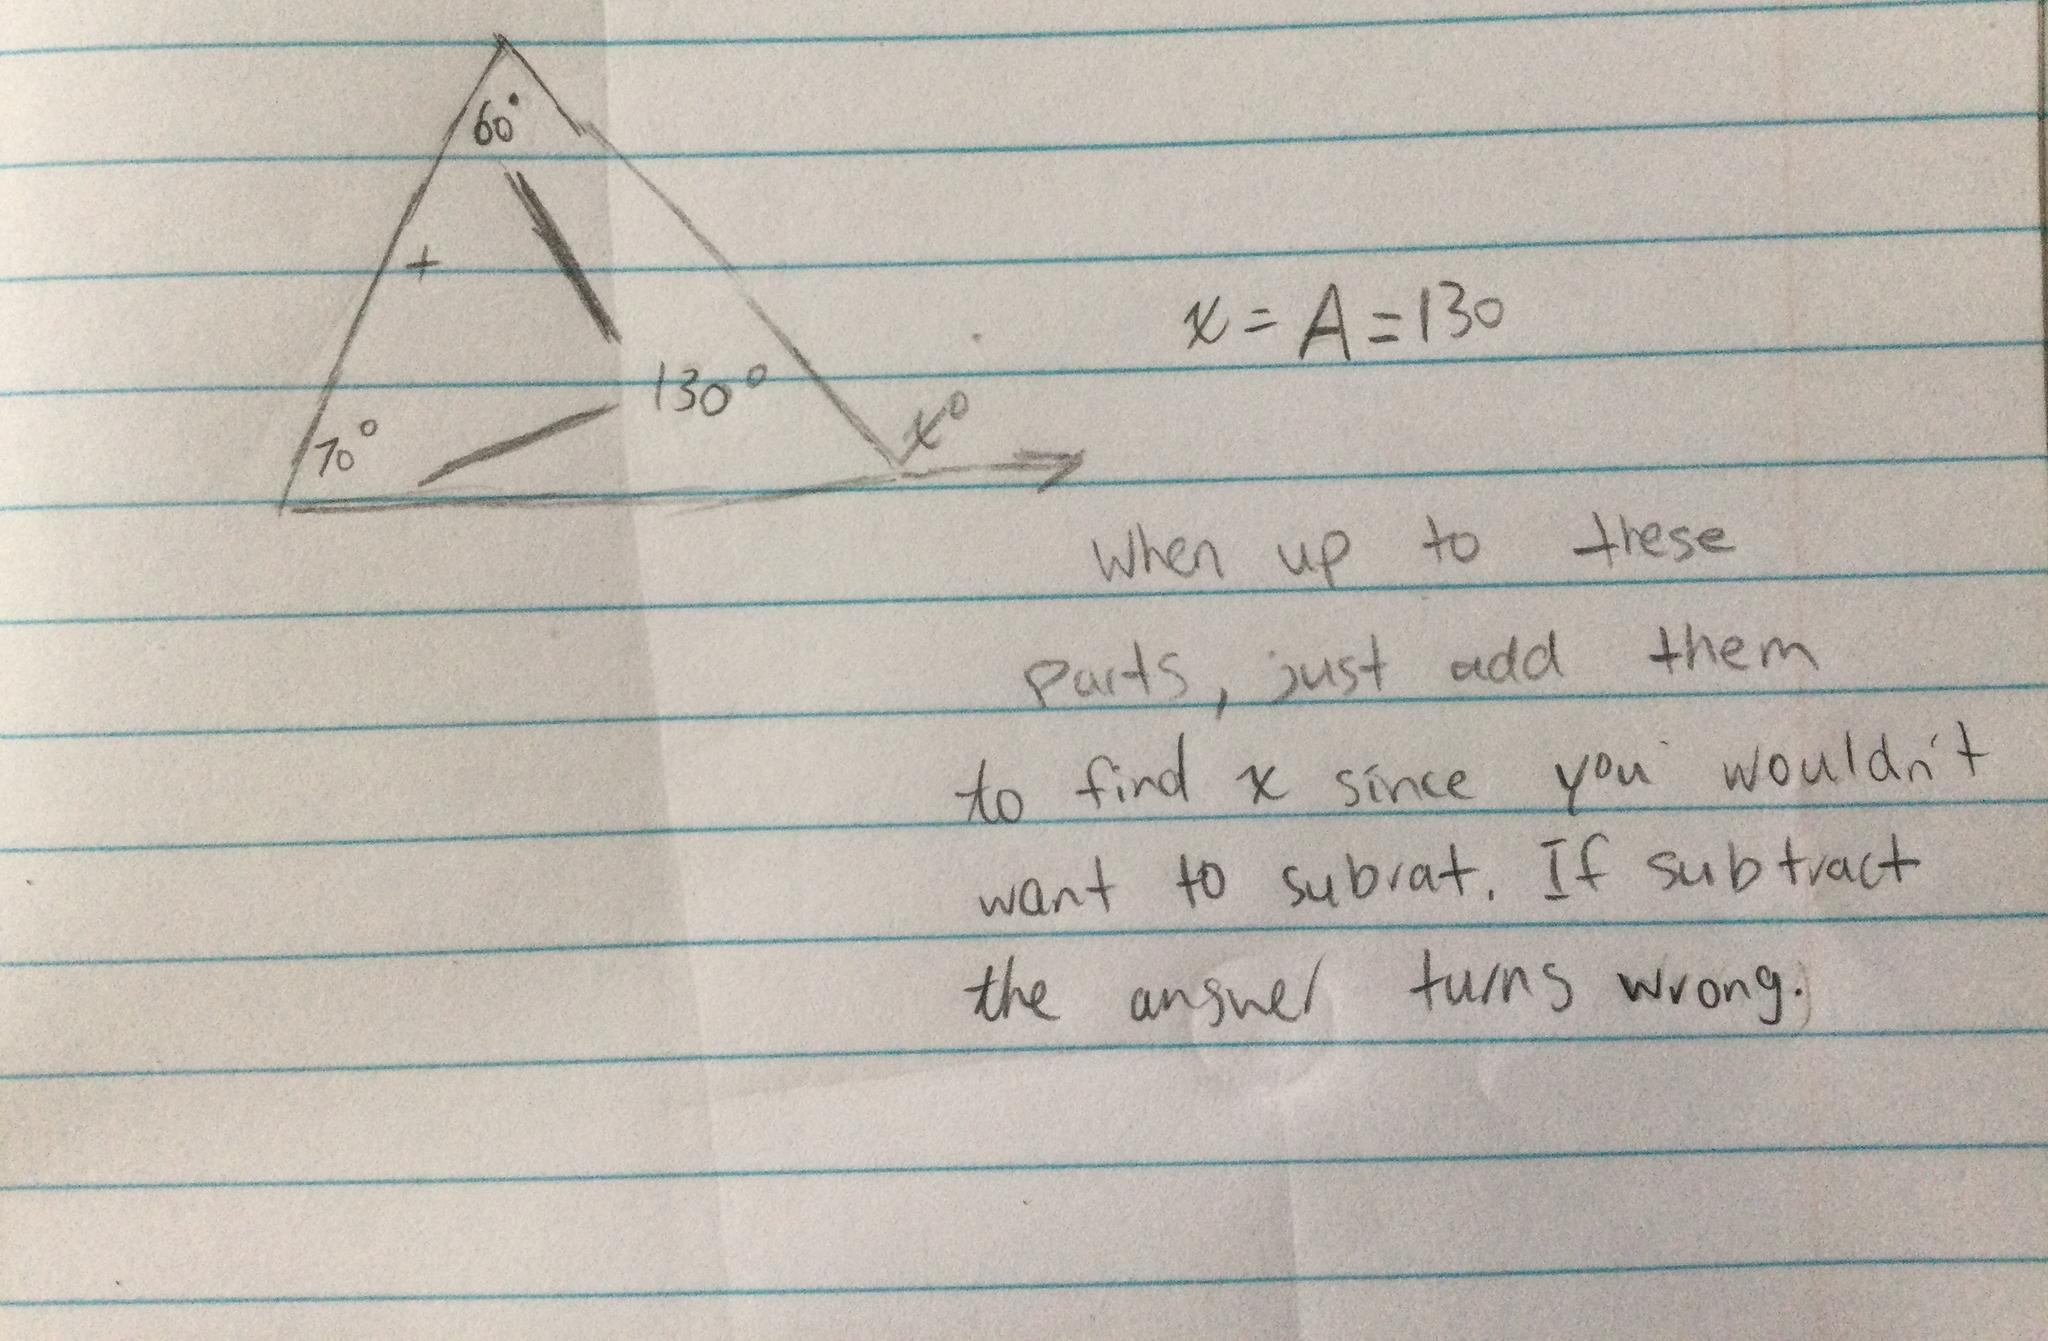 60°
+
130°
70°
x°
x = A = 130
When up to these
parts, just add them
to find x since you wouldn't
want to subrat. If subtract
the answer turns wrong.